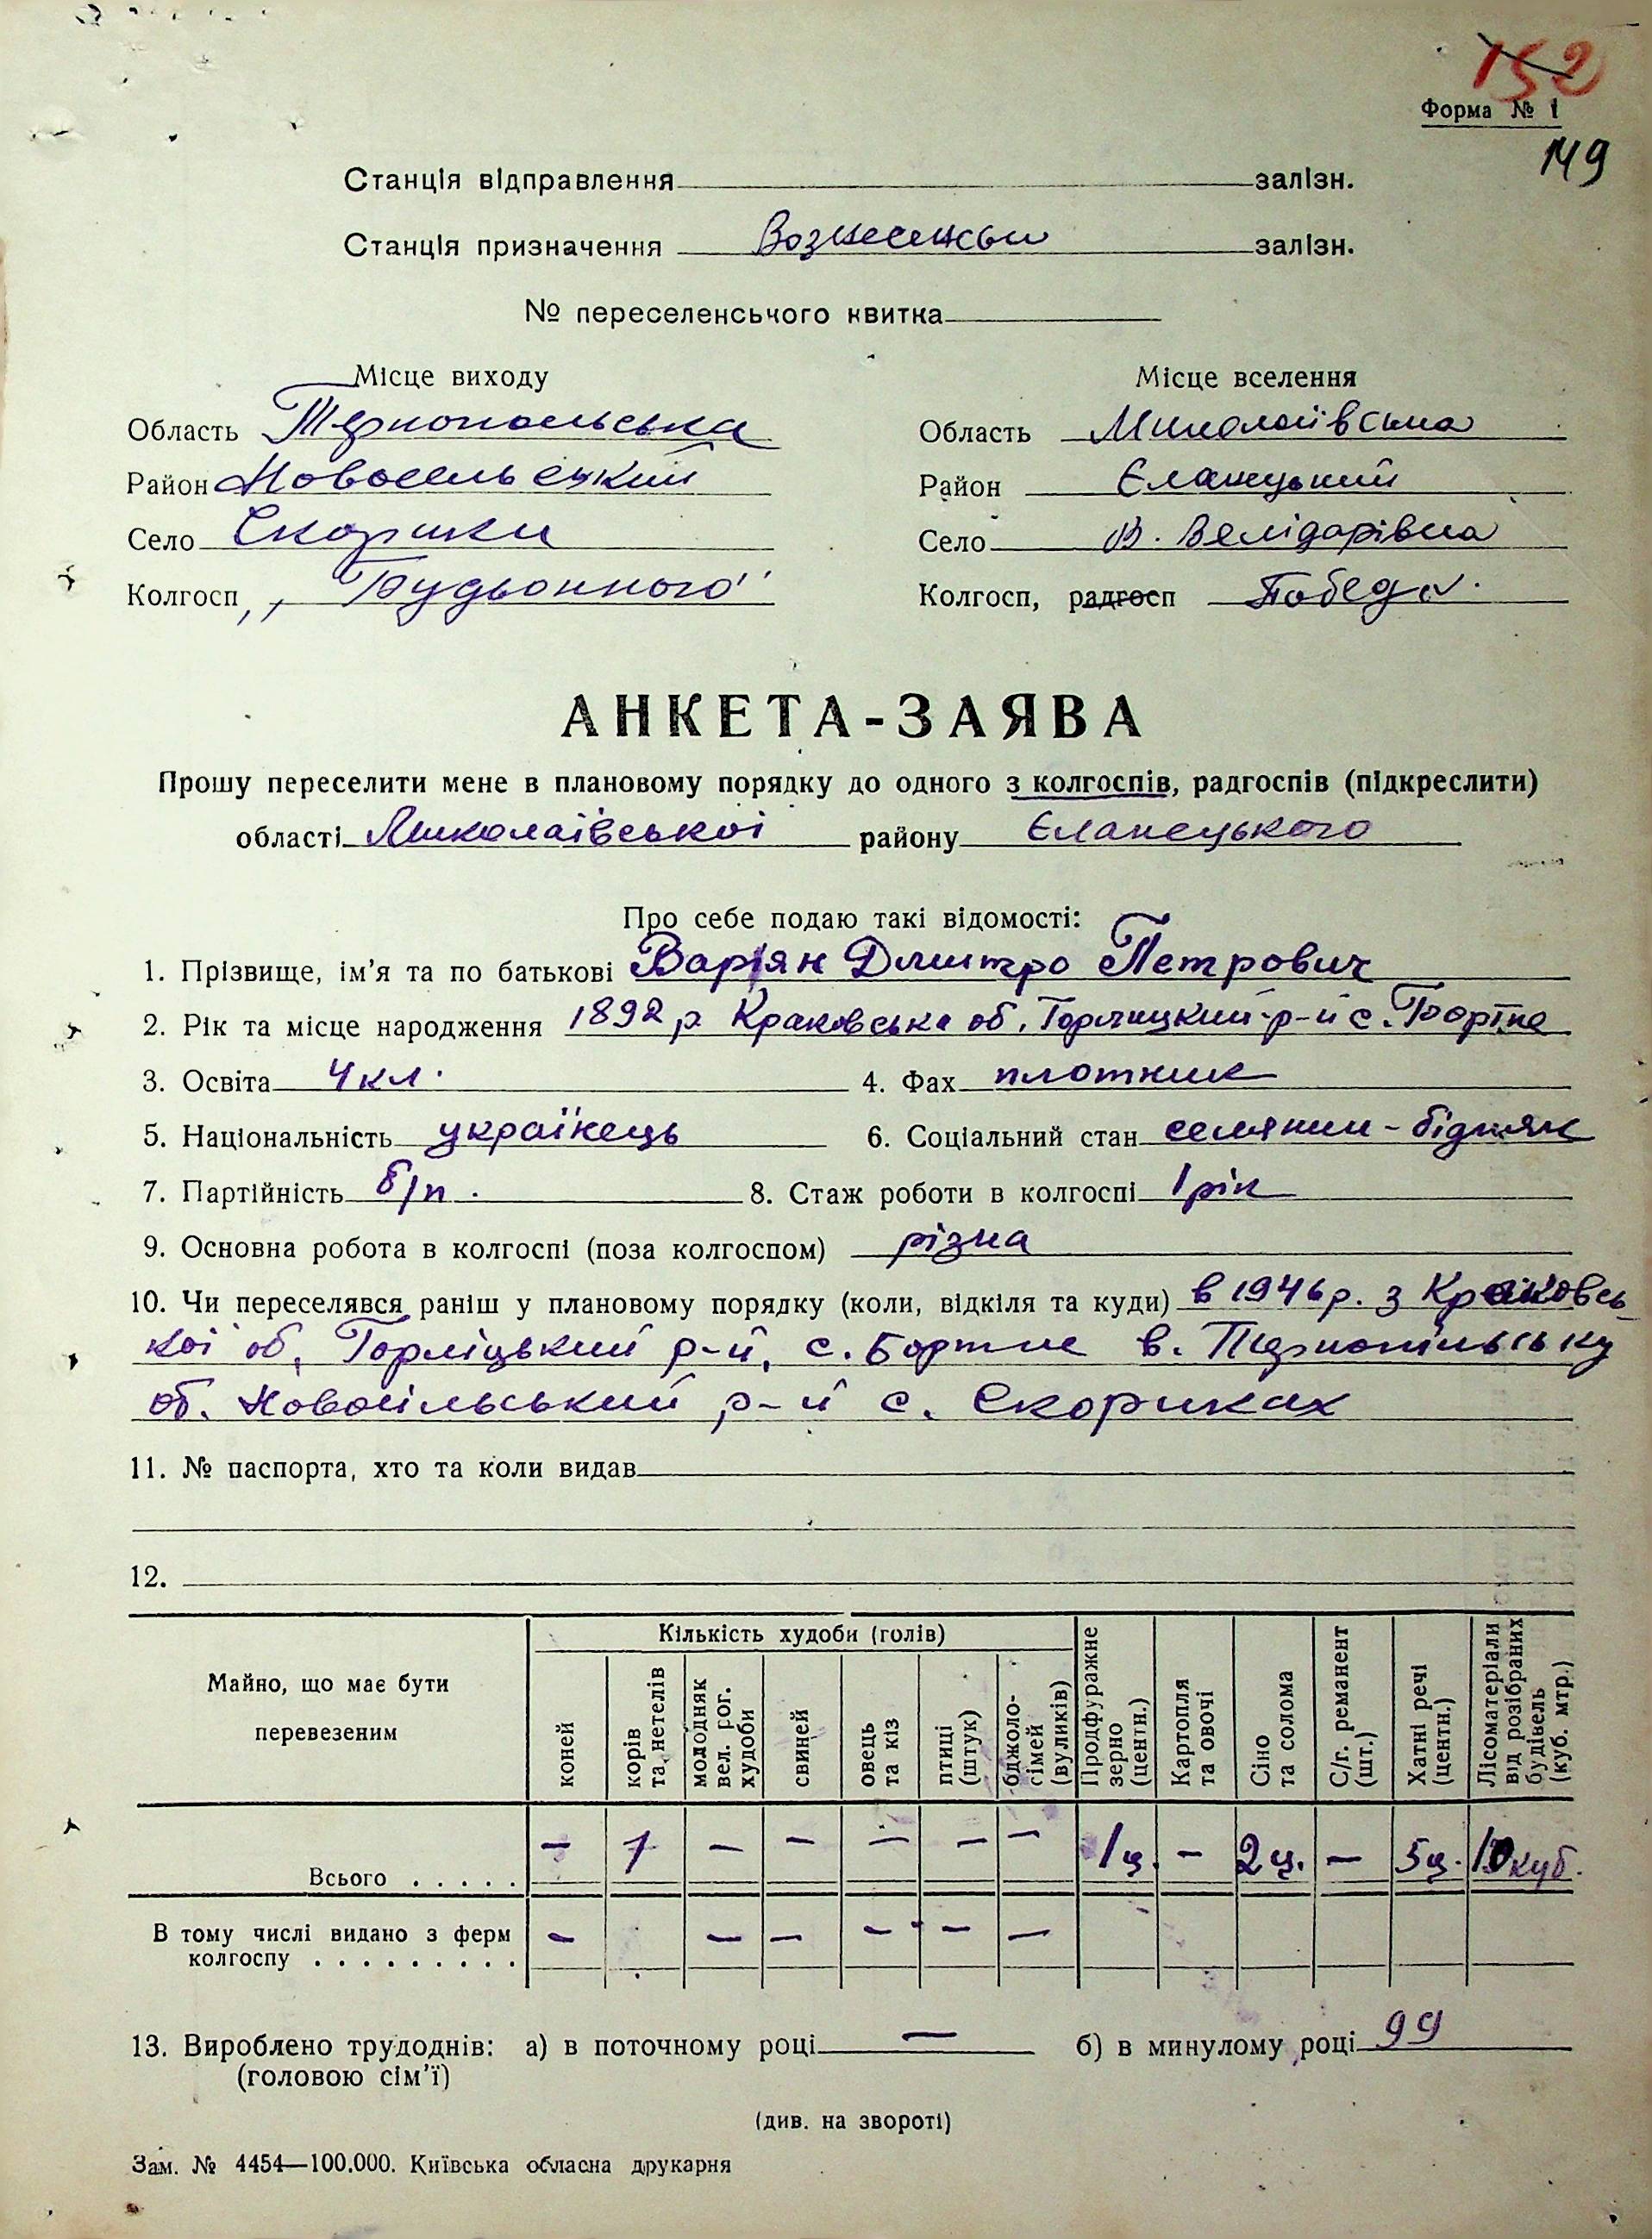 152
Форма № 1
149
Станція відправлення залізн.
Станція призначення Вознесенськ залізн.
№ переселенського квитка
Місце виходу Місце вселення
Область Тернопольська Область Миколаївська
Район Новосельський Район Єланецький
Село Скорики Село В.
Колгосп ,,Будьонного" Колгосп, радгосп Победа.
АНКЕТА-ЗАЯВА
Прошу переселити мене в плановому порядку до одного з колгоспів, радгоспів (підкреслити)
області Миколаївської району Єланецького
Про себе подаю такі відомості:
1. Прізвище, ім'я та по батькові Варіян Дмитро Петрович
2. Рік та місце народження 1892 р Краковська об. Горлицкий р-й с. Бортне
3. Освіта 4 кл. 4. Фах плотник
5. Національність українець 6. Соціальний стан селянин-бідняк
7. Партійність б/п. 8. Стаж роботи в колгоспі 1 рік
9. Основна робота в колгоспі (поза колгоспом) різна
10. Чи переселявся раніш у плановому порядку (коли, відкіля та куди) в 1946 р. з Краковсь-
кої об, Горліцький р-й, с. Бортне в. Тернопільську
об. Новосільський р-й с. Скориках
11. № паспорта, хто та коли видав
12.
Майно, що має бути перевезеним
Кількість худоби (голів)
коней
корів та нетелів
молодняк вел. рог. худоби
свиней
овець та кіз
птиці (штук)
бджоло-сімей (вуликів)
Продфуражне зерно (центн.)
Картопля та овочі
Сіно та солома
С/г. реманент (шт.)
Хатні речі (центн.)
Лісоматеріали від розібраних будівель (куб. мтр.)
Всього . . . . . — 1 — — — — — 1 ц. — 2 ц. — 5 ц. 10 куб.
В тому числі видано з ферм
колгоспу . . . . . . . . . — — — — — —
13. Вироблено трудоднів: а) в поточному році — б) в минулому році 99
(головою сім'ї)
(див. на звороті)
Зам. № 4454—100.000. Київська обласна друкарня